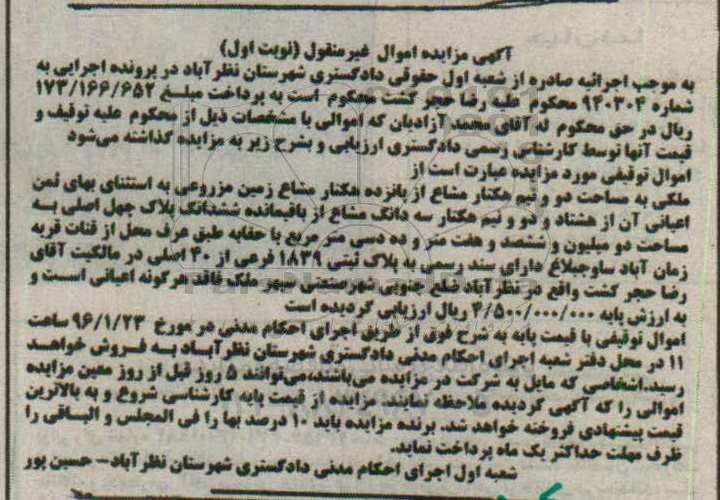 آگهی مزایده اموال غیرمنقول (نوبت اول)
به موجب اجرائیه صادره از شعبه اول حقوقی دادگستری شهرستان نظرآباد در پرونده اجرایی به
شماره ۹۴۰۳۰۴ محکوم علیه رضا حجر کشت محکوم است به پرداخت مبلغ ۱۷۳/۱۶۶/۶۵۲
ریال در حق محکوم له آقای محمد آزادیان که اموالی با مشخصات ذیل از محکوم علیه توقیف و
قیمت آنها توسط کارشناس رسمی دادگستری ارزیابی و بشرح زیر به مزایده گذاشته می‌شود
اموال توقیفی مورد مزایده عبارت است از
ملکی به مساحت دو و نیم هکتار مشاع از پانزده هکتار مشاع زمین مزروعی به استثنای بهای ثمن
اعیانی آن از هشتاد و دو و نیم هکتار سه دانگ مشاع از باقیمانده ششدانگ پلاک چهل اصلی به
مساحت دو میلیون و ششصد و هفت متر و ده دسی متر مربع با حقابه طبق عرف محل از قنات قریه
زمان آباد ساوجبلاغ دارای سند رسمی به پلاک ثبتی ۱۸۳۹ فرعی از ۴۰ اصلی در مالکیت آقای
رضا حجر کشت واقع در نظرآباد ضلع جنوبی شهرصنعتی سپهر ملک فاقد هرگونه اعیانی است و
به ارزش پایه ۴/۵۰۰/۰۰۰/۰۰۰ ریال ارزیابی گردیده است
اموال توقیفی با قیمت پایه به شرح فوق از طریق اجرای احکام مدنی در مورخ ۹۶/۱/۲۳ ساعت
۱۱ در محل دفتر شعبه اجرای احکام مدنی دادگستری شهرستان نظرآباد به فروش خواهد
رسید.اشخاصی که مایل به شرکت در مزایده می‌باشند،می‌توانند ۵ روز قبل از روز معین مزایده
اموالی را که آگهی گردیده ملاحظه نمایند. مزایده از قیمت پایه کارشناسی شروع و به بالاترین
قیمت پیشنهادی فروخته خواهد شد. برنده مزایده باید ۱۰ درصد بها را فی المجلس و الباقی را
ظرف مهلت حداکثر یک ماه پرداخت نماید.
شعبه اول اجرای احکام مدنی دادگستری شهرستان نظرآباد– حسین پور